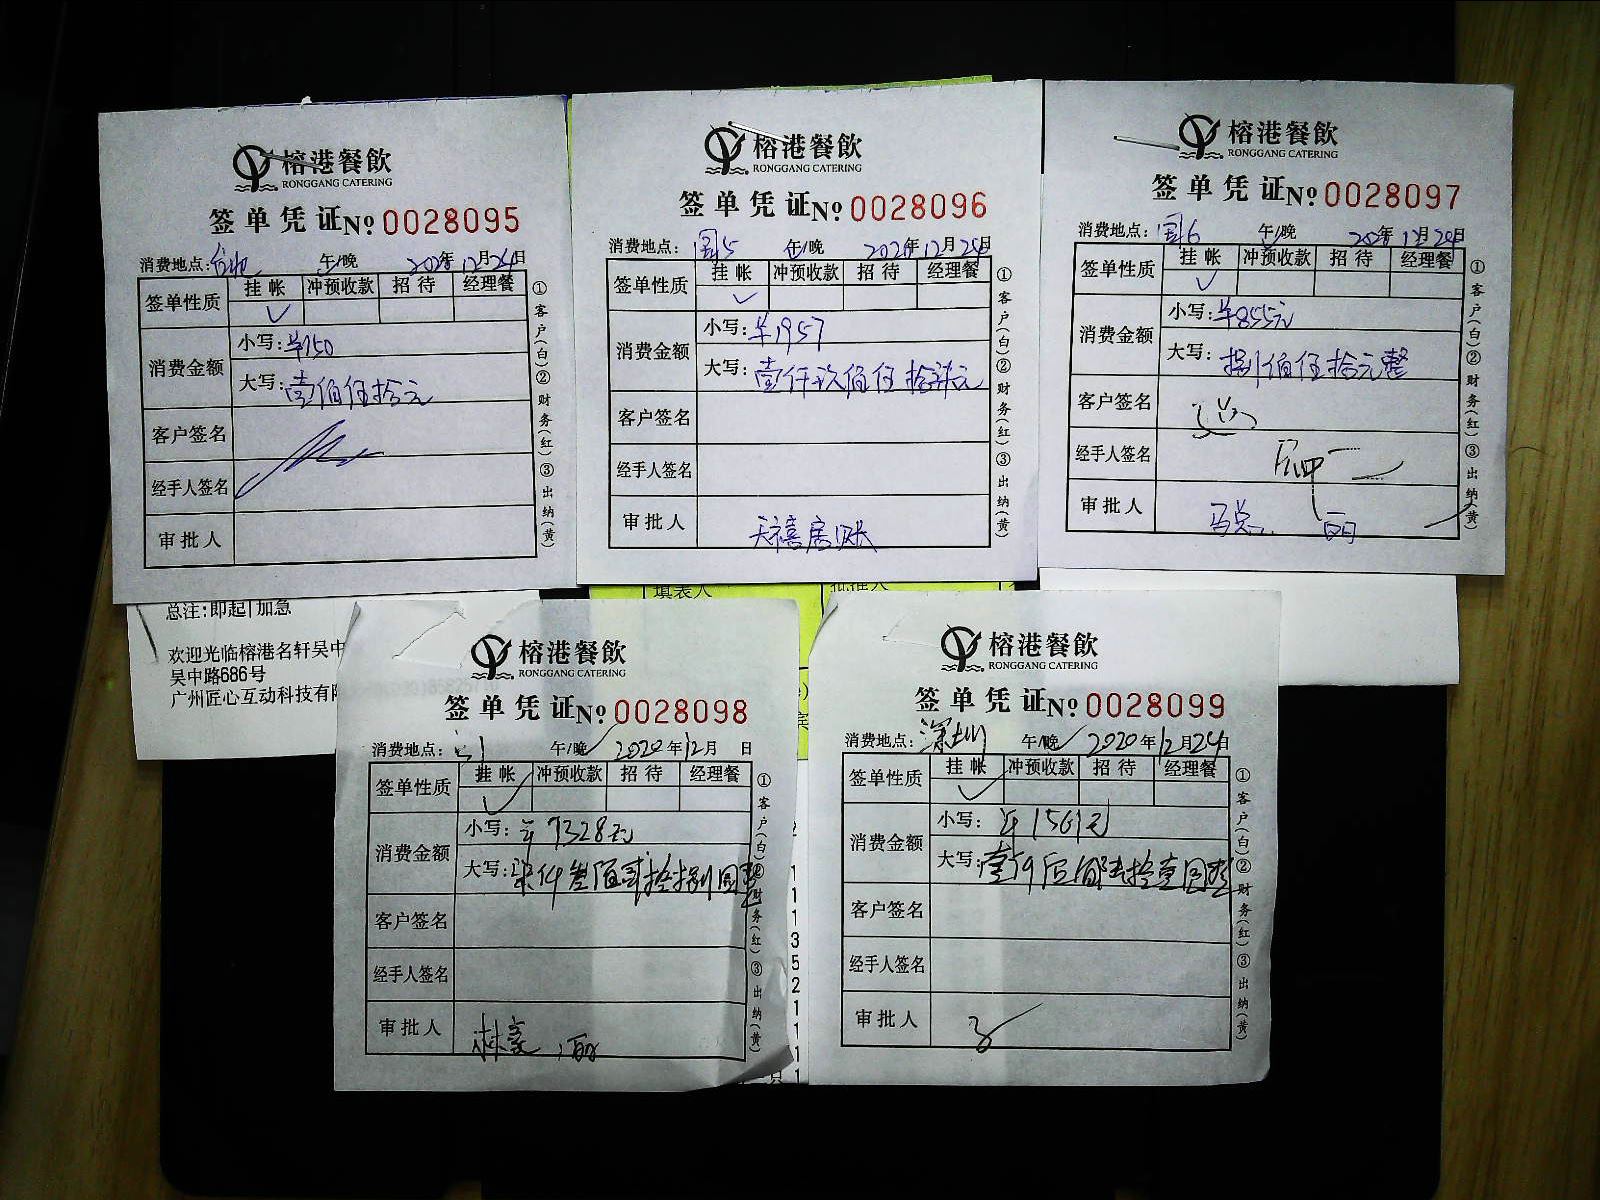 榕港餐飲
RONGGANG CATERING
签单凭证No 0028095
消费地点: 午/晚 2020年12月24日
签单性质 挂帐 冲预收款 招待 经理餐
✓
消费金额 小写:¥150
大写:壹佰伍拾元
客户签名
经手人签名
审批人
①客户(白)②财务(红)③出纳(黄)
榕港餐飲
RONGGANG CATERING
签单凭证No 0028096
消费地点:周5 午/晚 2020年12月24日
签单性质 挂帐 冲预收款 招待 经理餐
✓
消费金额 小写:¥1957
大写:壹仟玖佰伍拾柒元
客户签名
经手人签名
审批人 天禧房账
①客户(白)②财务(红)③出纳(黄)
榕港餐飲
RONGGANG CATERING
签单凭证No 0028097
消费地点:周6 午/晚 2020年12月24日
签单性质 挂帐 冲预收款 招待 经理餐
✓
消费金额 小写:¥855元
大写:捌佰伍拾元整
客户签名
经手人签名
审批人 马总
①客户(白)②财务(红)③出纳(黄)
总注:即起|加急
欢迎光临榕港名轩吴中
吴中路686号
广州匠心互动科技有限
填表人 批准人
榕港餐飲
RONGGANG CATERING
签单凭证No 0028098
消费地点: 午/晚✓ 2020年12月 日
签单性质 挂帐 冲预收款 招待 经理餐
✓
消费金额 小写:¥7328元
大写:柒仟叁佰贰拾捌圆整
客户签名
经手人签名
审批人
①客户(白)②财务(红)③出纳(黄)
榕港餐飲
RONGGANG CATERING
签单凭证No 0028099
消费地点:深圳 午/晚✓ 2020年12月24日
签单性质 挂帐 冲预收款 招待 经理餐
✓
消费金额 小写:¥1561元
大写:壹仟伍佰陆拾壹圆整
客户签名
经手人签名
审批人
①客户(白)②财务(红)③出纳(黄)